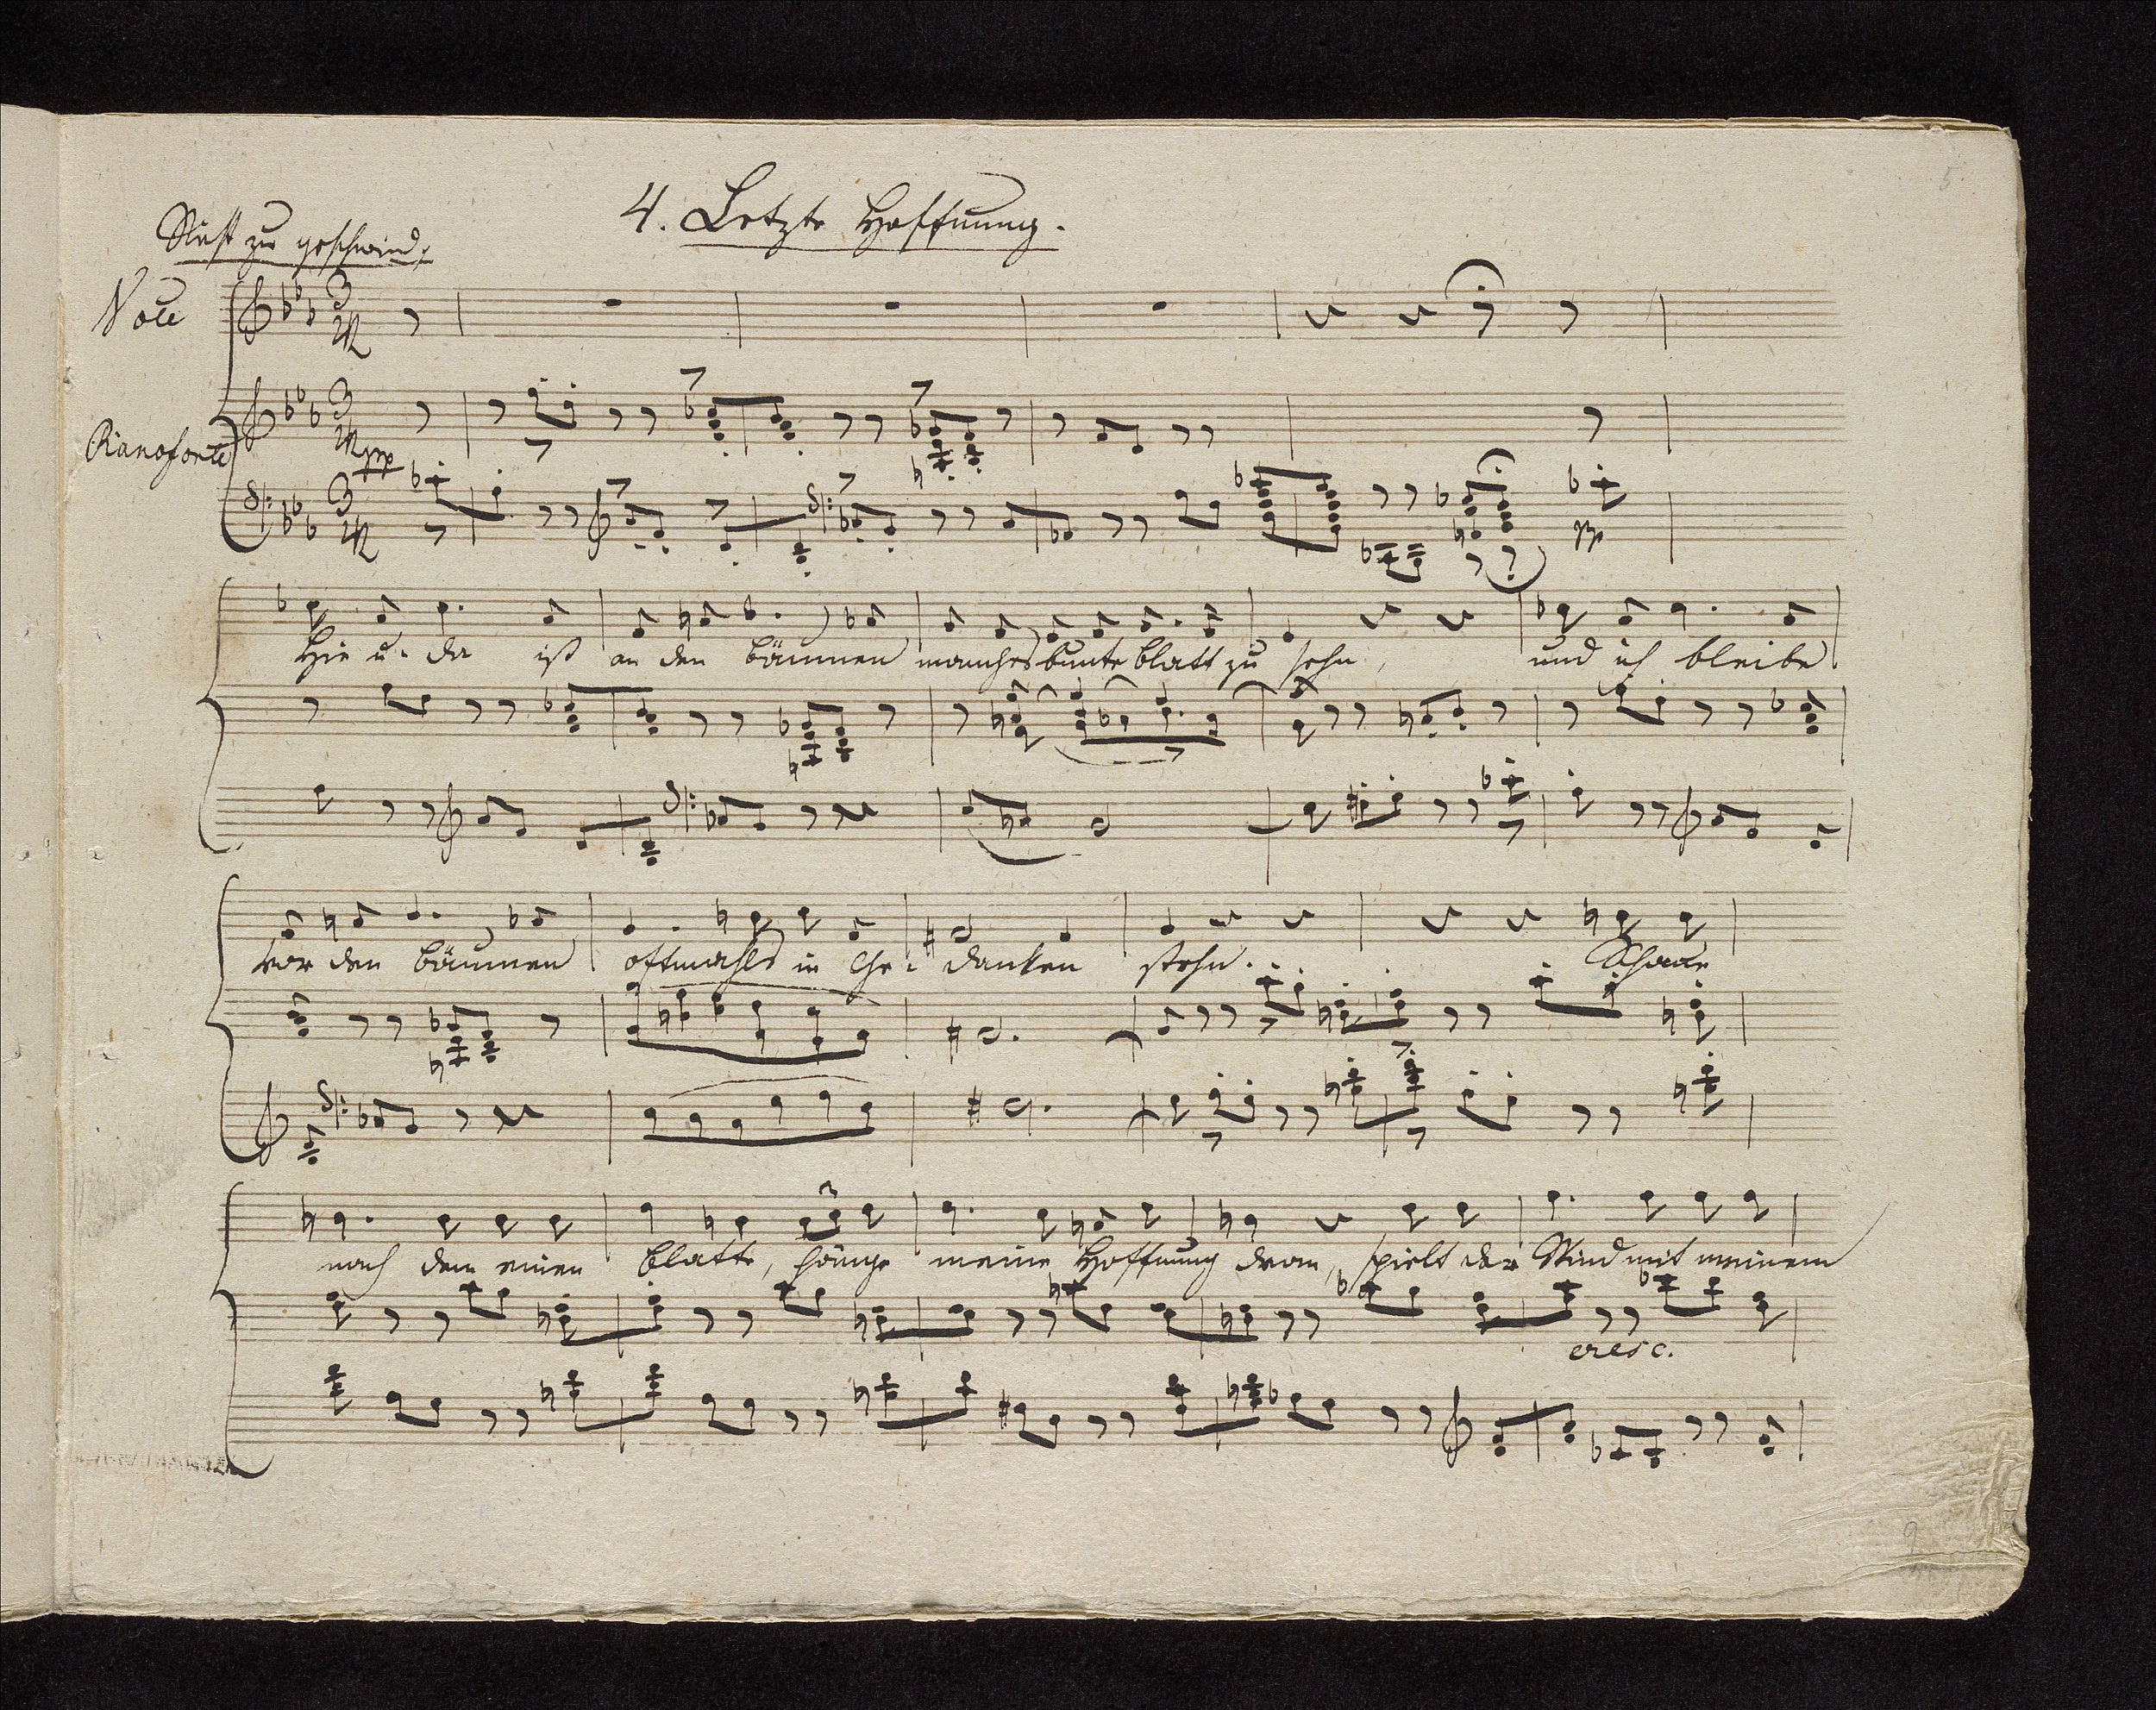 5.
4. Letzte Hoffnung.
Nicht zu geschwind,
Voce
Pianoforte
pp
pp
Hie u. da ist an den Bäumen manches bunte Blatt zu sehn, und ich bleibe
vor den Bäumen oftmahls in Ge- danken stehn. Schaue
nach dem einen Blatte, hänge meine Hoffnung dran, spielt der Wind mit meinem
3
cresc.
9